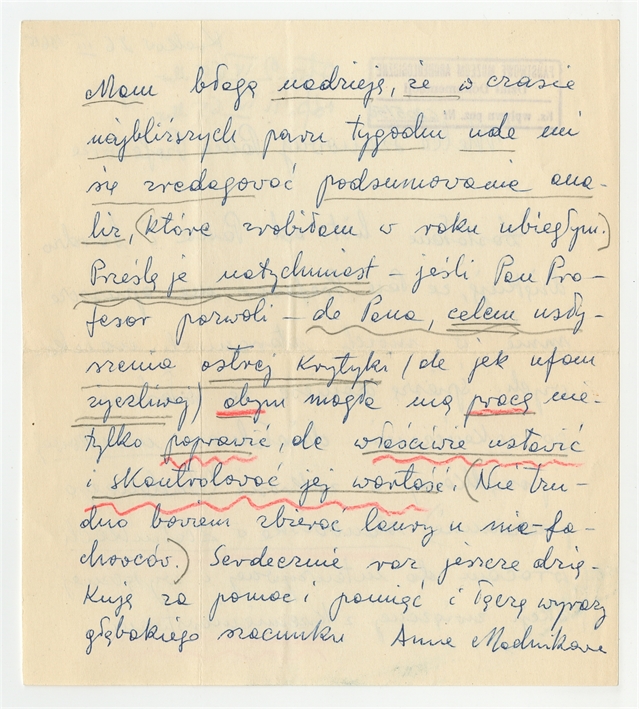 Mam błogą nadzieję, że w czasie
najbliższych paru tygodni uda mi
się zredagować podsumowanie ana-
liz, (które zrobiłam w roku ubiegłym.)
Prześlę je natychmiast – jeśli Pan Pro-
fesor pozwoli – do Pana, celem usły-
szenia ostrej krytyki (ale jak ufam
życzliwej) abym mogła mą pracę nie-
tylko poprawić, ale właściwie ustawić
i skontrolować jej wartość. (Nie tru-
dno bowiem zbierać laury u nie-fa-
chowców.) Serdecznie raz jeszcze dzię-
kuję za pomoc i pamięć i łączę wyrazy
głębokiego szacunku Anna